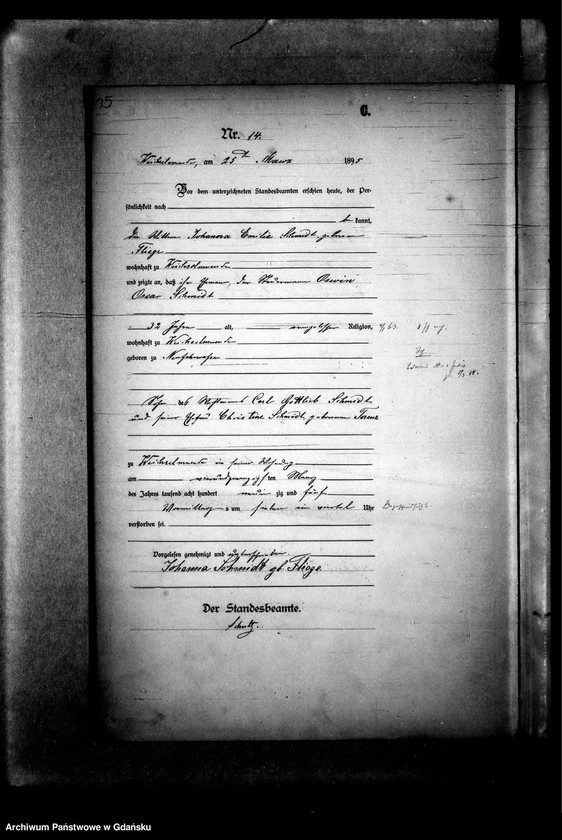 15
C.
Nr. 14.
Weichselmünde, am 25ten Maerz 1895
Vor dem unterzeichneten Standesbeamten erschien heute, der Per-
sönlichkeit nach
be kannt,
die Johanna Emilie Schmidt geborene
Fliege
wohnhaft zu Weichselmünde
und zeigte an, daß ihr Ehemann, der Steuermann Oswin
Oscar Schmidt
32 Jahre alt, evangelischer Religion,
wohnhaft zu Weichselmünde
geboren zu Neufahrwasser
Sohn des Carl Gottlieb Schmidt
und seiner Ehefrau Christine Schmidt geborenen
zu Weichselmünde in seiner Wohnung
am vierundzwanzigsten März
des Jahres tausend acht hundert neun zig und fünf
Vormittags um sieben ein viertel Uhr
verstorben sei.
Vorgelesen genehmigt und unterschrieben.
Johanna Schmidt gb. Fliege.
Der Standesbeamte.
Schultz.
Archiwum Państwowe w Gdańsku